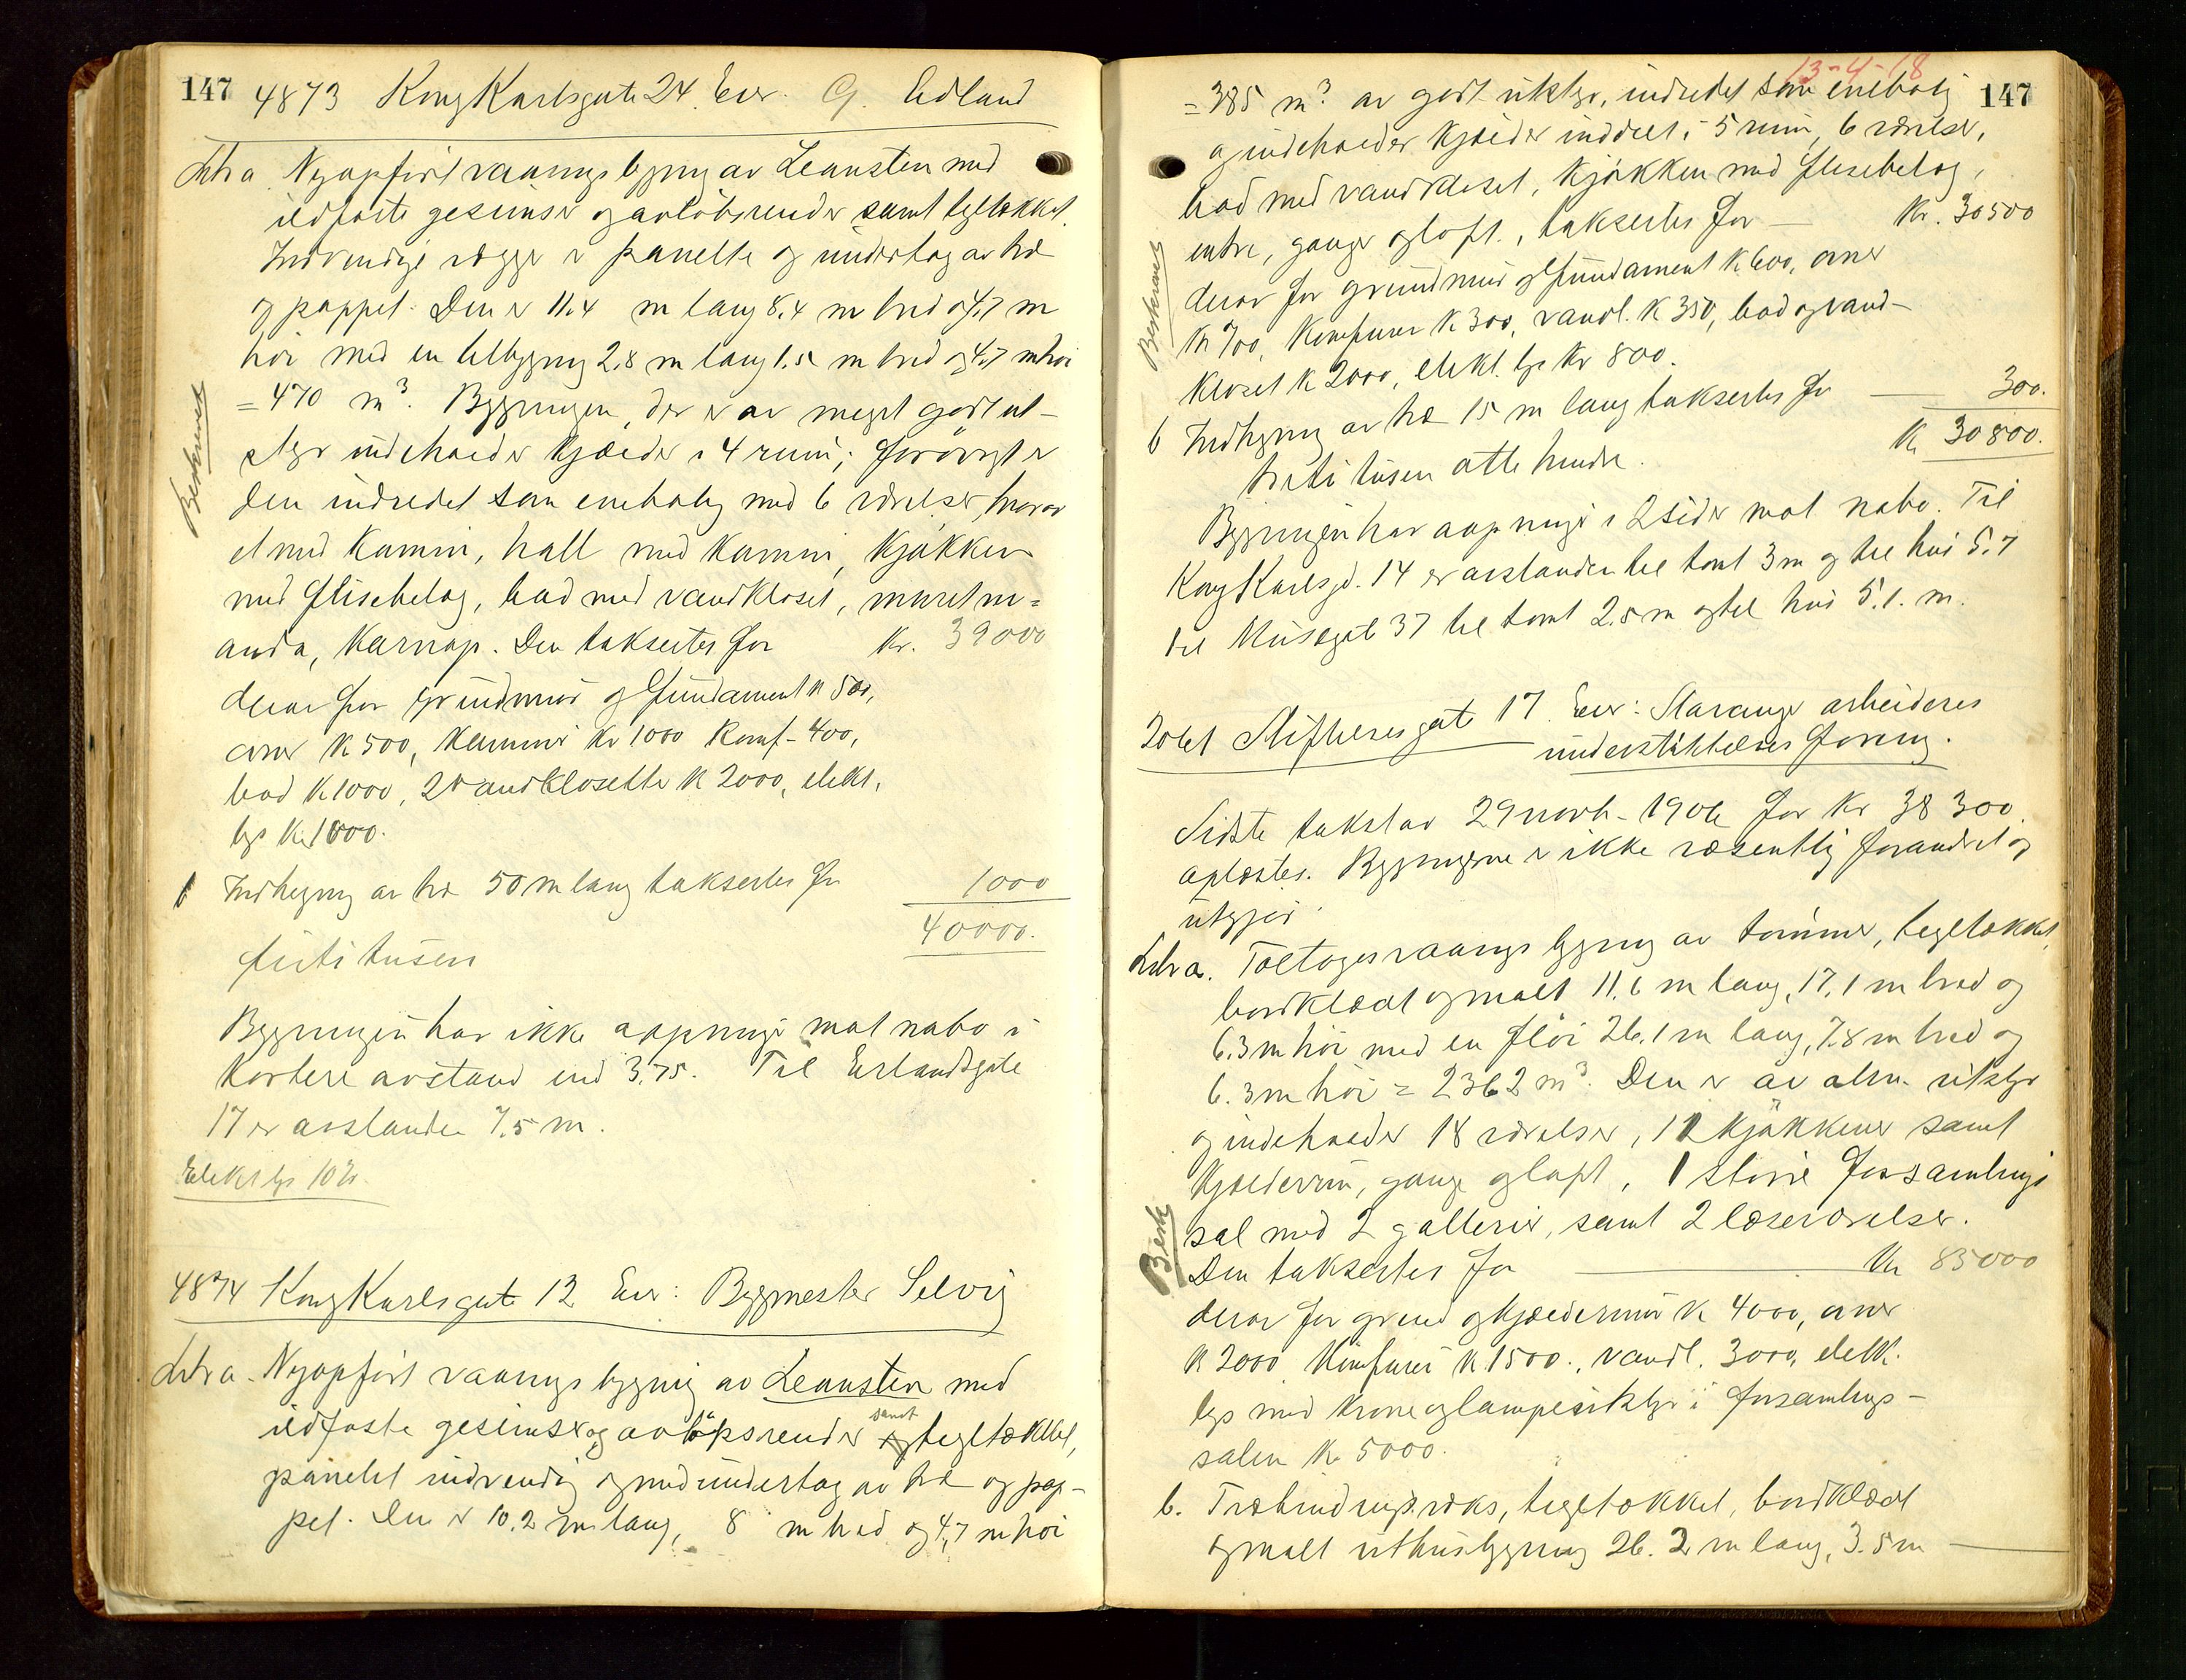 147 4873 Kong Karlsgate 24. Eier. G. Edland
Litra Nyopført vaaningsbygning av Leansten med
ildfaste gesimser og avløbsrender samt tegltækket.
Indvendige vægge er panelte og undertag av træ
og pappet. Den er 11.4 m lang 8.4 m bred og 4.7 m
høi med en tilbygning 2.8 m lang 1.5 m bred og 4.7 m høi
= 470 m³. Bygningen, der er av meget godt ut-
styr indeholder kjælder i 4 rum; forøvrigt er
den indredet som enebolig med 6 værelser, hvorav
et med kamin, hall med kamin, kjøkken
med flisebelæg, bad med vandkloset, muret ver-
anda, karnap. Den taksertes for Kr. 39000
derav for grundmur og fundament K 500,
ovner K 500, kaminer Kr 1000 Komf- 400,
bad K 1000, 2 vandklosetter K 2000, elekt.
lys K. 1000.
b Indhegning av træ 50 m lang taksertes for 1000
40000.
firti tusen
Bygningen har ikke aapninger mot nabo i
kortere avstand end 3.75. Til Erlandsgate
17 er avstanden 7.5 m.
Elekt lys
Beskrevet
4874 Kong Karlsgate 12 Eier: Bygmester Selvig
Litra. Nyopført vaaningsbygning av Leansten med
ildfaste gesimser og avløpsrender samt tegltækket,
panelt indvendig og med undertag av træ og pap-
pet. Den er 10.2 m lang, 8 m bred og 4.7 m høi
13-4-18
147
= 385 m³ av godt utstyr, indredet som enebolig
og indeholder kjælder inddelt i 5 rum, 6 værelser,
bad med vandkloset, kjøkken med flisebelæg,
entre, ganger og loft., taksertes for — Kr. 30500
derav for grundmur og fundament K 600, ovner
Kr 700, Komfurer K 300, vandl. K 350, bad og vand-
kloset K 2000, elekt. lys Kr 800.
b Indhegning av træ 15 m lang taksertes for — 300.
K 30800.
treti tusen otte hundre.
Beskrevet
Bygningen har aapninger i 2 sider mot nabo. Til
Kong Karlsgd. 14 er avstanden til tomt 3 m og til hus 5.7
til Musegate 37 til tomt 2.5 m og til hus 5.1. m.
2061 Stiftelsesgate 17 Eier: Stavanger arbeideres
understøttelses forening.
Sidste takst av 29 novb- 1906 for Kr 38300
oplæstes. Bygningerne er ikke væsentlig forandret og
utgjør:
Litra. Toetages vaaningsbygning av tømmer, tegltækket,
bordklædt og malt 11.6 m lang, 17.1 m bred og
6.3 m høi med en fløi 26.1 m lang, 7.8 m bred og
6.3 m høi = 2362 m³. Den er av alm. utstyr
og indeholder 18 værelser, 12 kjøkkener samt
Kjælderrum, gange og loft, 1 større forsamlings
sal med 2 gallerier, samt 2 læseværelser.
Den taksertes for — Kr 85000
derav for grund og kjældermur K 4000, ovner
K 2000 Komfurer K 1500., vandl. 3000, elekt.
lys med krone og lampeutstyr i forsamlings-
salen K 5000.
Besk
b. Træbindingsværks, tegltækket, bordklædt
og malt uthusbygning 26.2 m lang, 3.5 m —